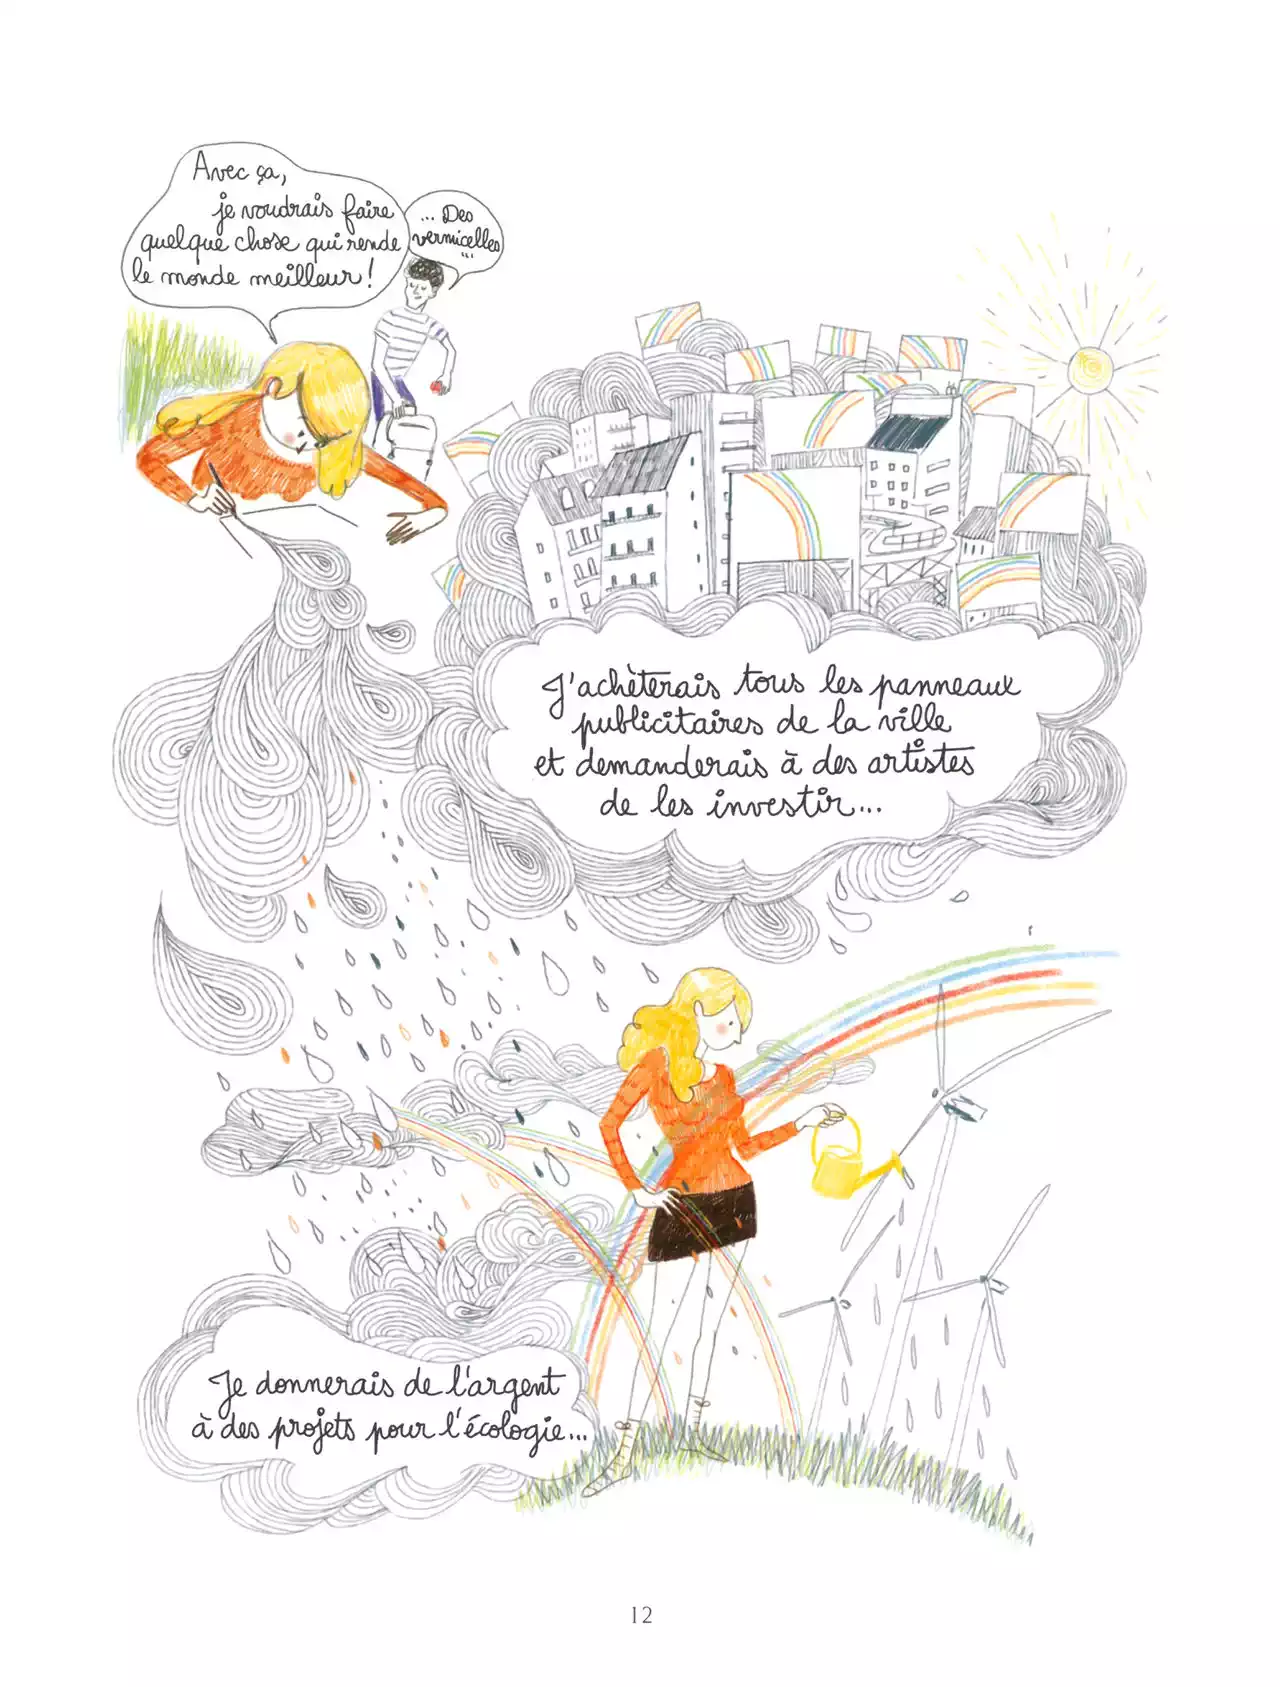 Avec ça,
je voudrais faire
quelque chose qui rende
le monde meilleur !
... Des
vermicelles
...
J'achèterais tous les panneaux
publicitaires de la ville
et demanderais à des artistes
de les investir...
Je donnerais de l'argent
à des projets pour l'écologie...
12